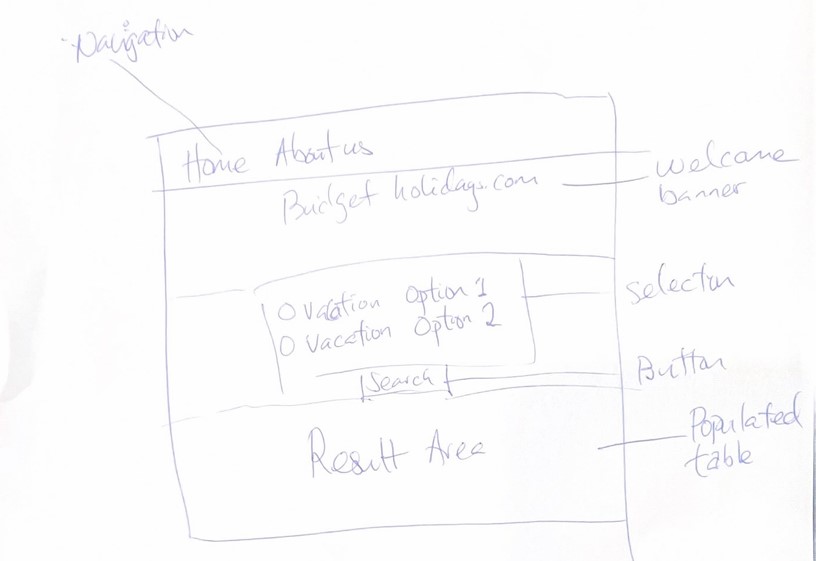 Navigation
Home About us
Budget holidays.com
welcome
banner
O Vacation Option 1
O Vacation Option 2
Selection
Search
Button
Result Area
Populated
table